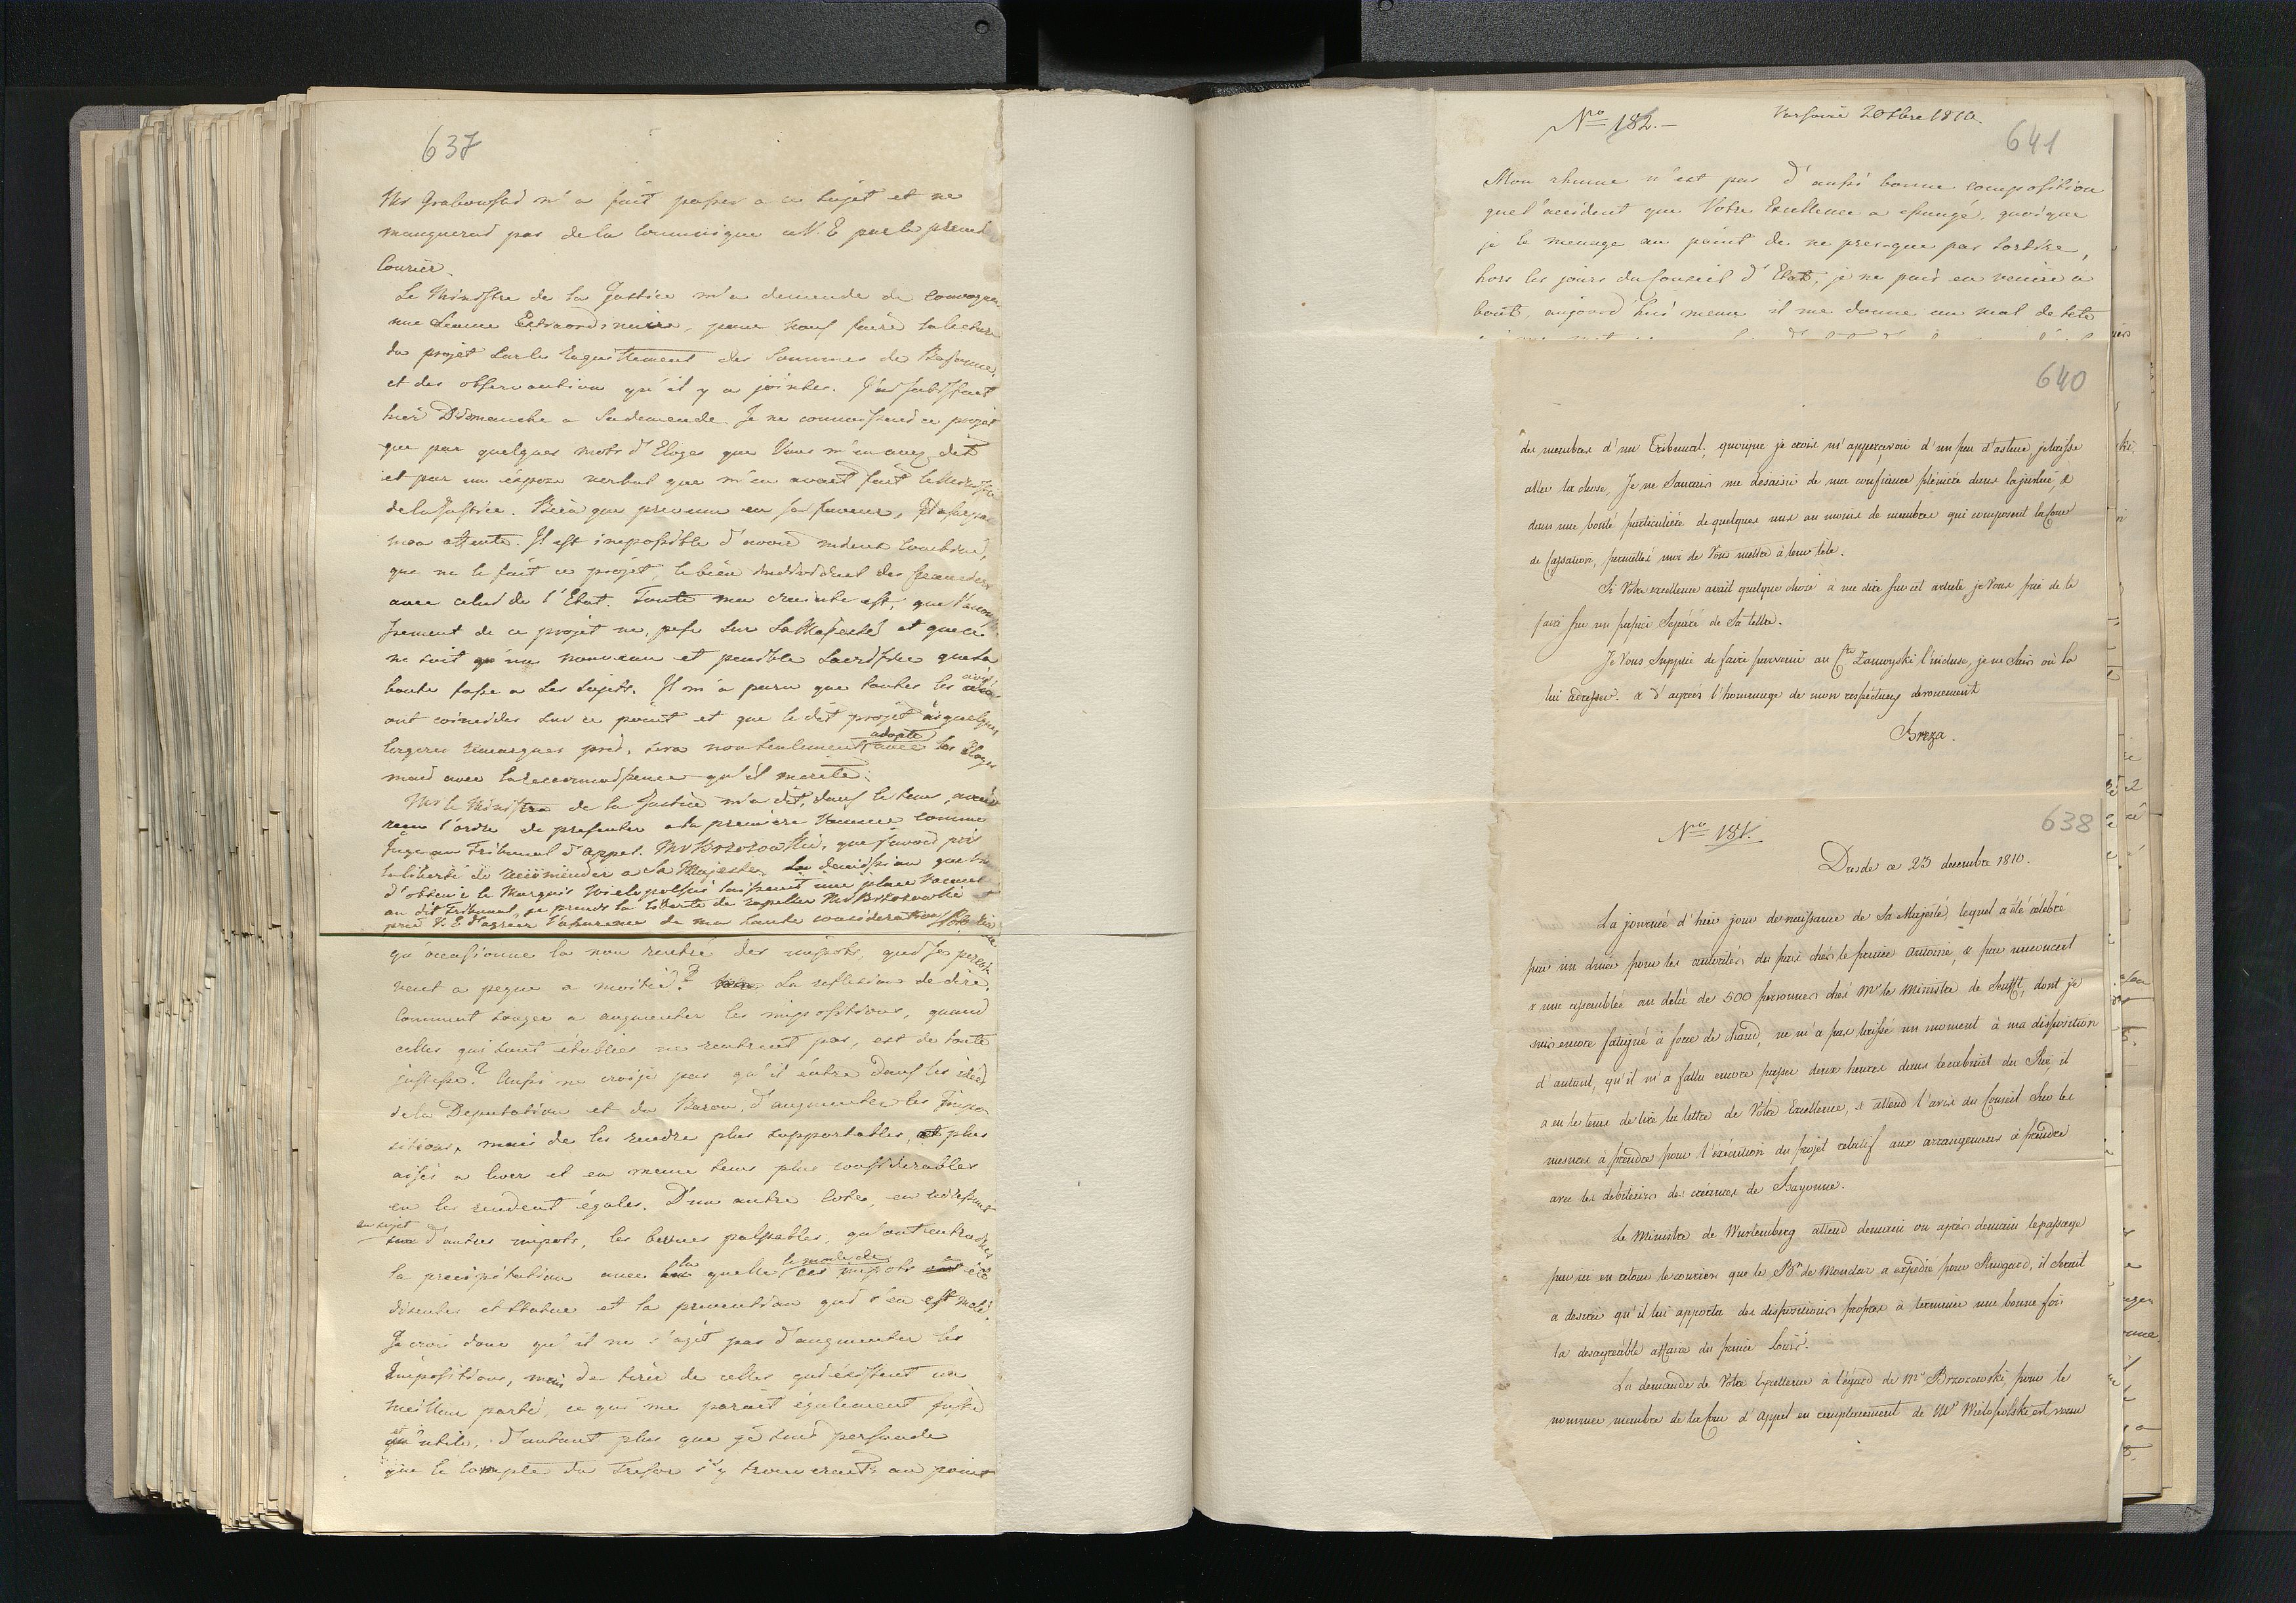 637
Mr Grabowski m'a fait passer a ce sujet et ne
manquerai pas de la communique a V. E par le premier
Courier.
Le Ministre de la Justice m'a demende de convoquer
une seance Extraordinaire, pour nous faire la lecture
du projet sur les des Sommes de Bajonne,
et des observations qu'il y a jointes. J'ai satisfait
hier Dimanche a sa demende. Je ne connaissais ce projet
que par quelques mots d'Eloges que Vous m'en avez dit
et par un éxpose verbal que m'en avait fait le Ministre
de la Justice. Bien que prevenu en sa faveur, il a surpassé
mon attente. Il est impossible d'avoir mieux combiné,
que ne le fait ce projet, le bien individuel des
avec celui de l'Etat. Toute ma crainte est, que
de ce projet ne, pese sur Sa Majesté et que ce
ne soit qu'un nouveau et penible sacrifice que sa
bonté fasse a ses sujets. Il m'a paru que toutes les avis
ont coincides sur ce point et que le dit projet a quelques
legeres remarques près, sera non seulement adopté avec les Eloges
mais avec la reconnaissance qu'il merite.
Mr le Ministre de la Justice m'a dit, dans le tems, avoir
recu l'ordre de presenter a la premiere Vacance comme
Juge au Tribunal d'appel. Mr Brzozowski, que j'avais pris
la liberté de recommender a Sa Majesté. La demission que vient
d'obtenir le Marquis Wielopolski laissant une place vacante
au dit Tribunal, je prends la liberté de rapeller Mr Brzozowski et
prie V. E d'agreer l'assurance de ma haute consideration
qu'occasionne la non rentré des impots, qui se
vent a peyne a moitié? La reflexion de dire,
Comment songer a augmenter les impositions, quand
celles qui sont établies ne rentrent pas, est de toute
justesse? Aussi ne croije pas qu'il éntre dans les idées
de la Deputation et du Baron, d'augmenter les Impo
sitions, mais de les rendre plus supportables, et plus
aisés a lever et en meme tems plus considerables
en les rendent égales. D'un autre coté, en redressant
au sujet d'autres impots, les bevues palpables, qu'ont entrainés
la precipitation avec la quelle le mode de ces impots été
discutés et statue et la prevention qui s'en est melé.
Je crois donc qu'il ne s'agit pas d'augmenter les
Impositions, mais de tirer de celles qui éxistent un
meilleur parti, ce qui me parait également juste
qu'utile, d'autant plus que je suis persuade
que le compte du Tresor s'y trouverait au point
No 182.
Varsovie 20 Xbre 1810.
641
Mon rhume n'est pas d'aussi bonne composition
que l'accident que Votre Excellence a essuyé, quoique
je le menage au point de ne presque pas sortire,
hors les jours du Conseil d'Etat, je ne puis en venire a
bout, aujourd'hui meme il me donne un mal de tete
640
des membres d'un Tribunal, quoique je crois m'appercevoir d'un peu d'astuce, je laisse
aller la chose. Je ne saurais me désaisir de ma confiance plénière dans la justice, &
dans une bonté particulière de quelques uns au moins de membres qui composent la Cour
de Cassation, permettés moi de Vous mettre à leur tête.
Si Votre excellence avait quelque chose à me dire sur cet article, je Vous prie de le
faire sur un papier séparé de Sa lettre.
Je Vous supplie de faire parvenir au Cte Zamoyski l'incluse, je ne sais où la
lui adresser. & d'agréer l'hommage de mon respectueux devouement
Breza.
638
No 181.
Dresde ce 23 decembre 1810.
La journée d'hier jour de naissance de Sa Majesté, lequel a été célébré
par un diner pour les autorités du païs chés le prince Antoine, & par un concert
& une assemblée au delà de 500 personnes chés Mr le Ministre de Senfft, dont je
suis encore fatigué à force de chaud, ne m'a pas laissé un moment à ma disposition
d'autant, qu'il m'a fallu encore passer deux heures dans le cabinet du Roi, il
a eu le tems de lire la lettre de Votre Excellence, & attend l'avis du Conseil sur les
mesures à prendre pour l'éxécution du projet relatif aux arrangemens à prendre
avec les debiteurs des créances de Bayonne.
Le Ministre de Wurtemberg attend demain ou après demain le passage
par ici en retour le courier que le Bn de a expedié pour Stuttgard, il serait
a desirer qu'il lui apporta des dispositions propres à terminer une bonne fois
la desagreable affaire du prince Louis.
La demande de Votre Excellence à l'égard de Mr Brzozowski, pour le
nommer membre de la Cour d'Appel en remplacement de Mr Wielopolski est venue